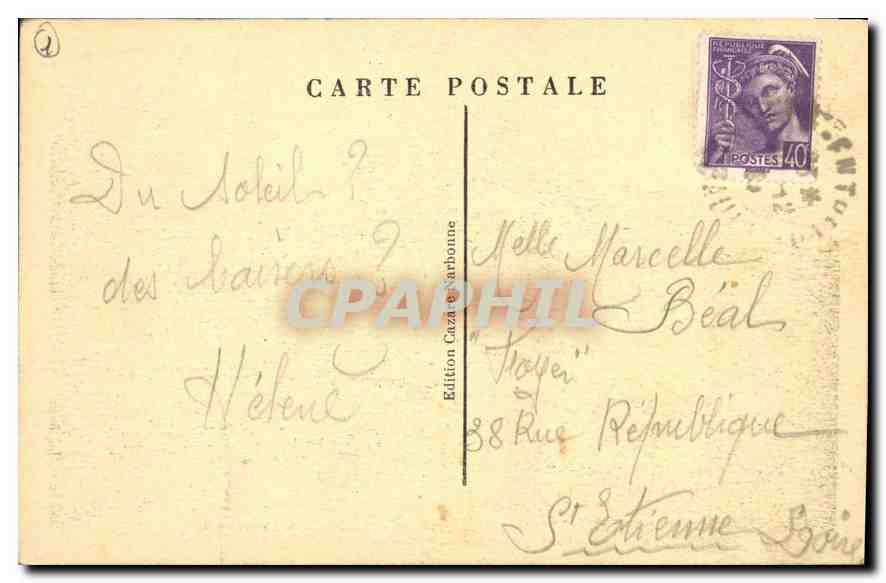 1
CARTE POSTALE
RÉPUBLIQUE
FRANÇAISE
POSTES 40
Du Soleil ?
des baisers ?
Hélène
Edition Cazare Narbonne
CPAPHIL
Melle Marcelle
Béal
"Foyer"
38 Rue République
St Etienne Loire